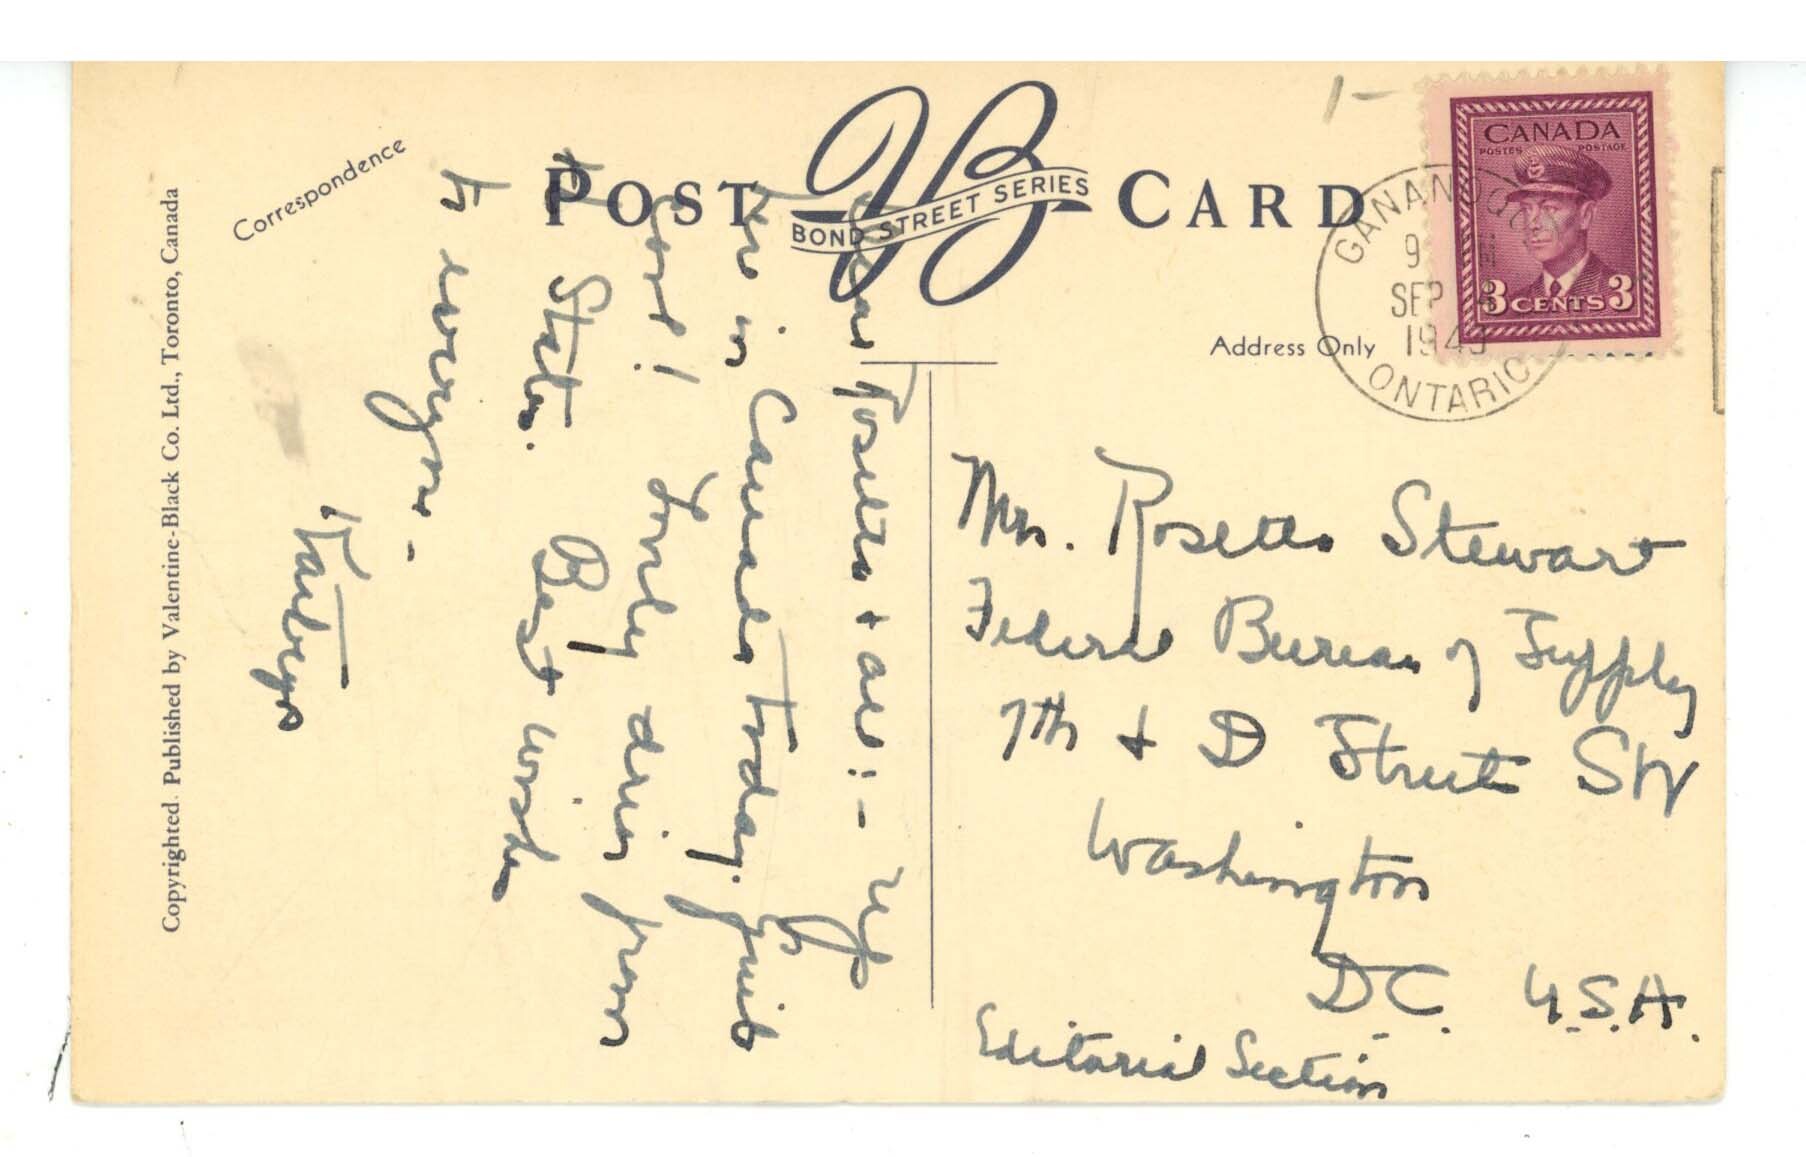 Correspondence
POST CARD
VB
BOND STREET SERIES
Address Only
CANADA
POSTES POSTAGE
3 CENTS 3
GANANOQUE
9 M
SEP 4
1949
ONTARIO
1-
Copyrighted. Published by Valentine-Black Co. Ltd., Toronto, Canada
Dear Rosetta + all:- Up
here in Canada today. Quite
cool! Lovely drive from
the States. Best wishes
to everyone -
Kathryn
Mrs. Rosetta Stewart
Federal Bureau of Supply
7th + D Streets SW
Washington
D.C. U.S.A.
Editorial Section